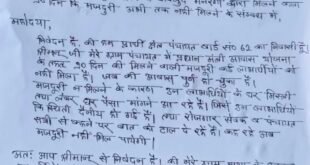 दिन की मजदूरी अभी तक नहीं मिलने के सम्बन्ध में,
महोदया,
निवेदन है, की हम प्रार्थी क्षेत्र पंचायत वार्ड सं० 62 का निवासी है।
श्रीमान जी मेरे ग्राम पंचायत में प्रधान मंत्री आवास योजना
के तहत 90 दिन की मिलने वाली मजदूरी कई लाभार्थीयो को
नही मिला है। जब की आवास पूर्ण हो चुका है।
मजदूरी न मिलने के कारण इन लाभार्थियो के घर मिस्त्री
तथा लेबर पैसा मांगने आ रहे है। जिसे इन लाभार्थियो
कि स्थिती दैनीय हो गई है। तथा रोजगार सेवक व पंचायत
से कहने पर बात को टाल दे रहे है। कह रहे अब
मजदूरी नही मिल पायेगी।
अतः आप श्रीमान से निवेदन है। की मेरे ग्राम